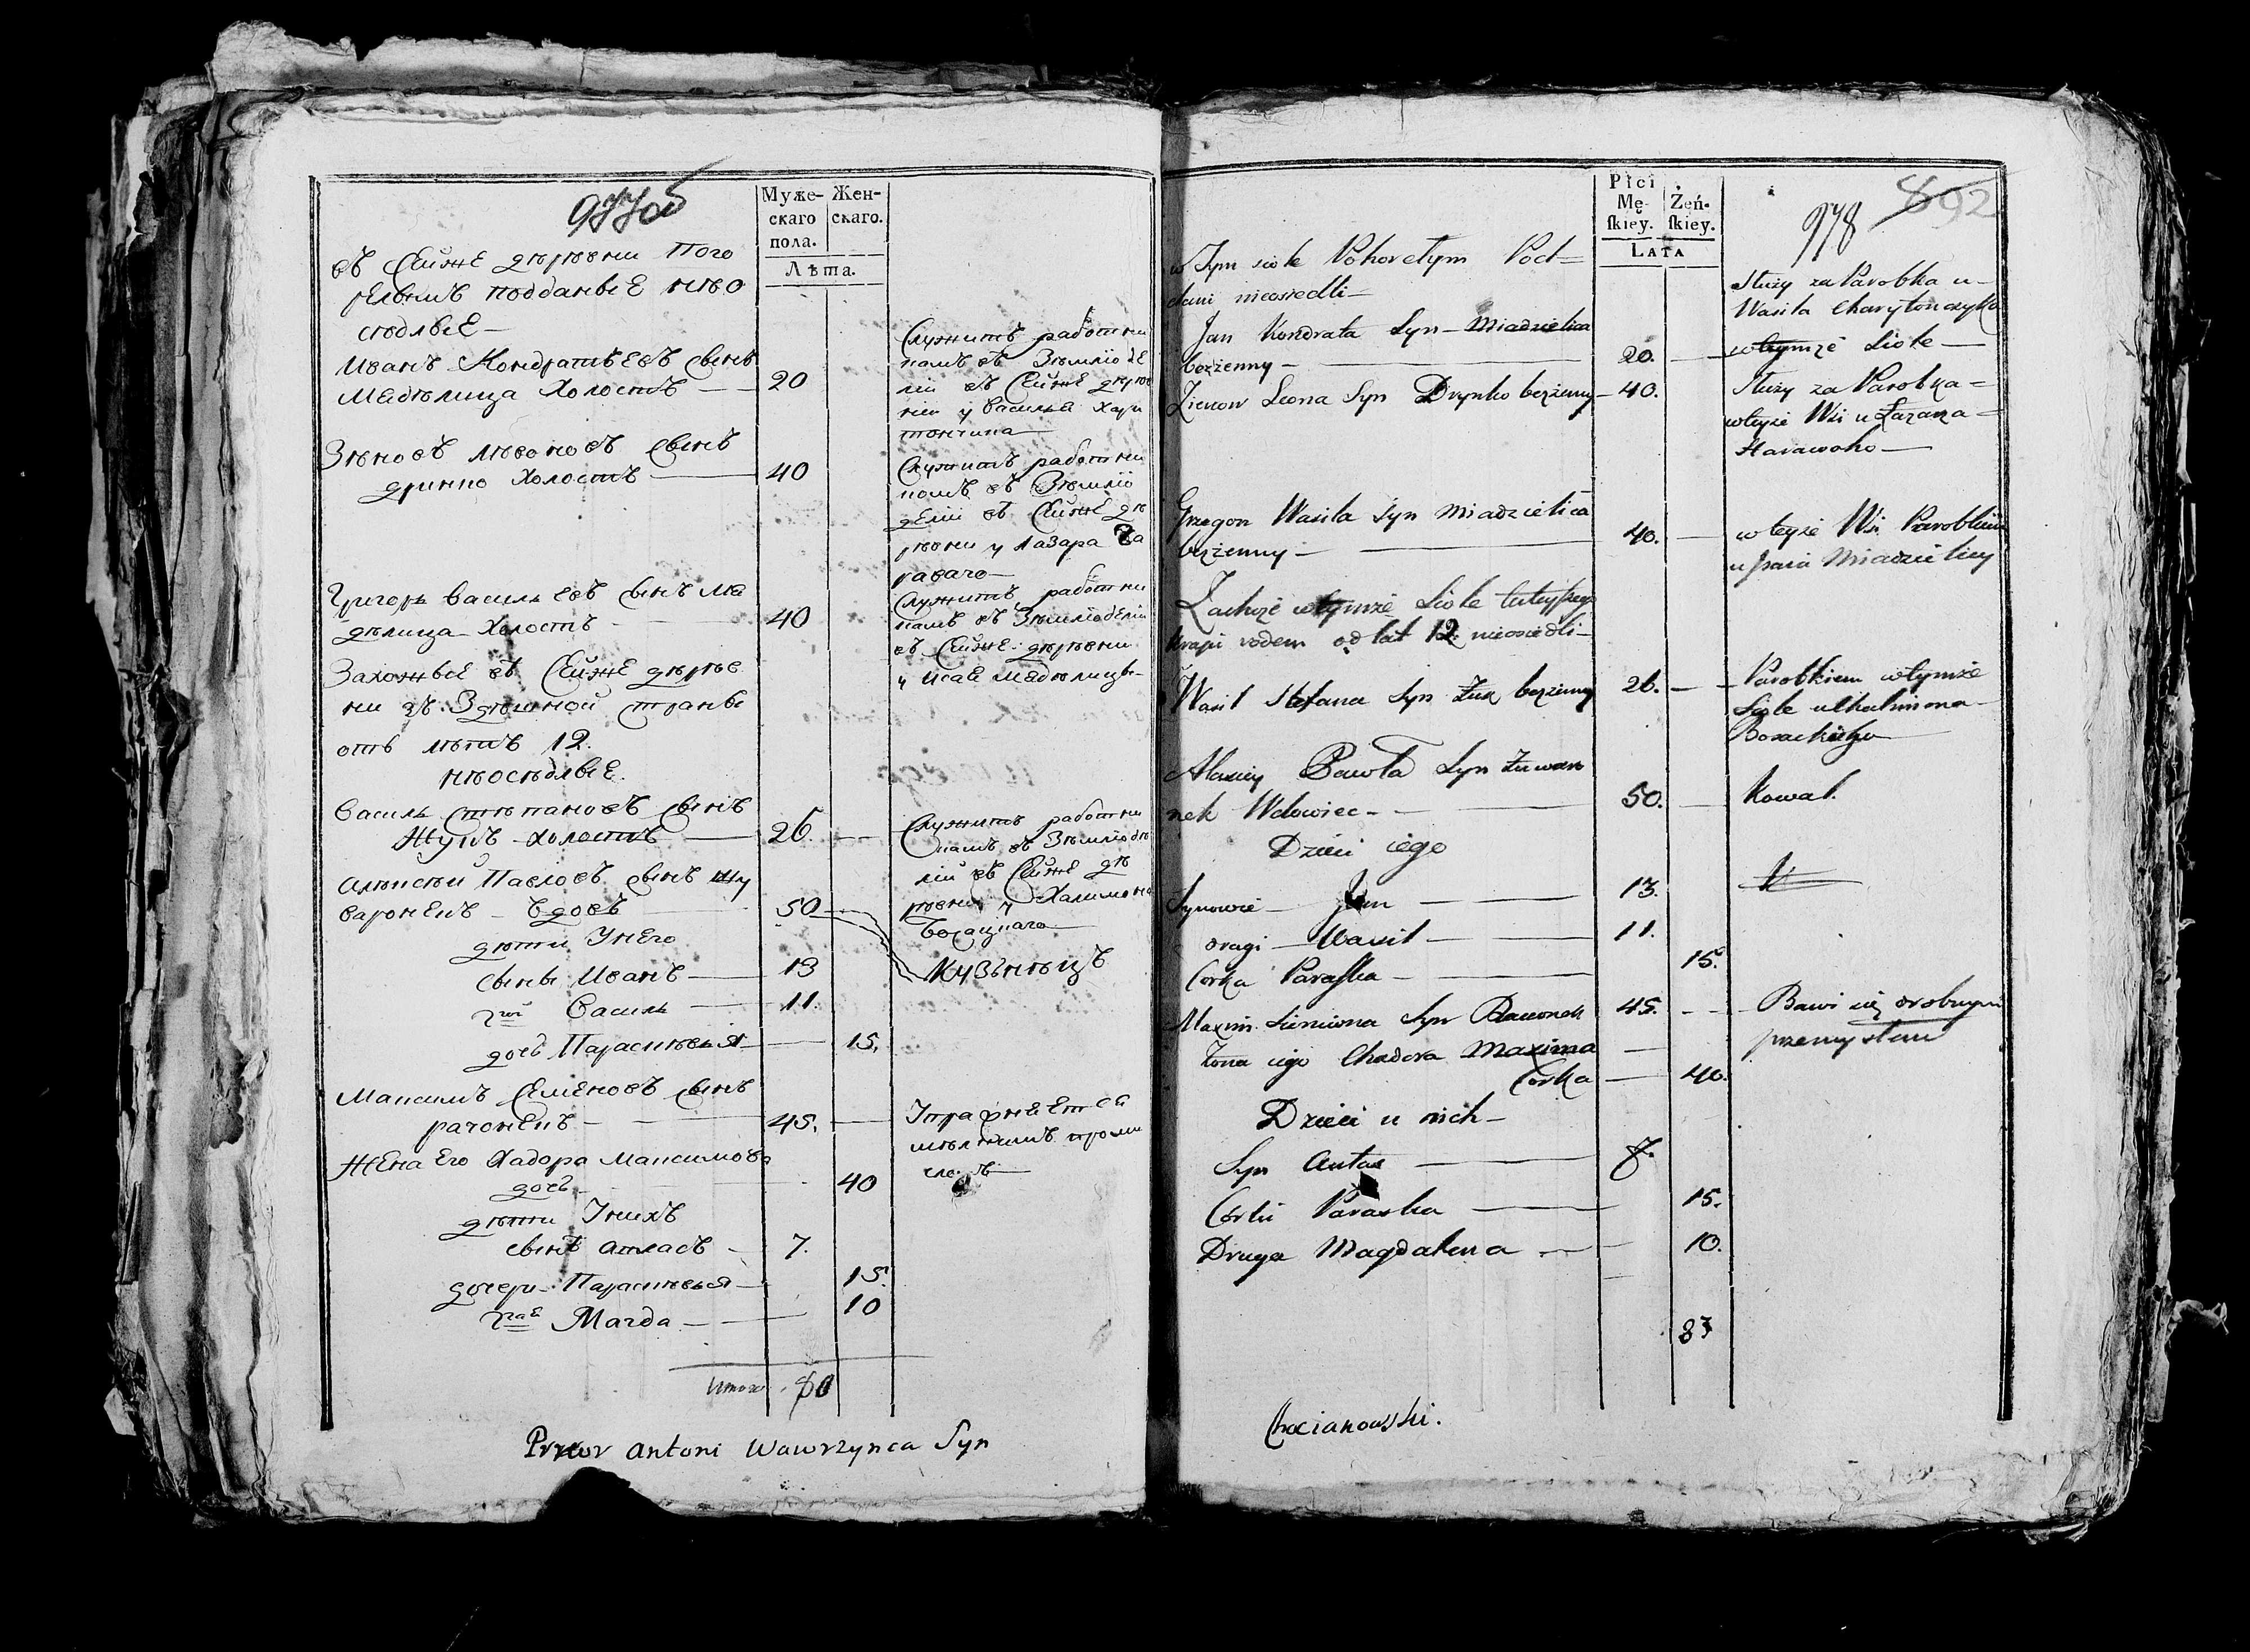 977об
Муже-
скаго
пола.
Жен-
скаго.
Лѣта.
въ Сейже деревни Пого
релымъ подданые нѣо
седлые —
Иванъ Кондратьевъ сынъ
Медѣлица Холостъ — 20
Служитъ работни
комъ въ Землiоде
лiи въ Сейже дерев
ни у Василья Хари
тончика
Зѣновъ Лѣвоновъ сынъ
дринко Холостъ — 40
Служитъ работни
комъ въ Землiо
делiи въ Сейже де
ревни у Лазара
Григоръ Васильевъ сынъ Мѣ
дѣлица Холостъ — 40
Служитъ работни
комъ въ Землiоделiи
въ Сейже деревни
у Исае Мѣдѣлицы
Захожые въ Сейже дерев
ни въ Здѣшной страны
отъ лѣтъ 12.
нѣоседлые.
Василь Стѣпановъ сынъ
Жукъ Холостъ — 26.
Служитъ работни
комъ въ Землiодѣ
лiи въ Сейже де
ревни у Халимона
Алексѣй Павловъ сынъ Жу
варонекъ — Вдовъ 50
дѣти Унего
сыны Иванъ — 13
2гой Василь — 11.
дочь Парасковья — 15.
Кузьнѣцъ
Максимъ Семеновъ сынъ
рачонекъ — 45.
Упражнеется
мѣлкимъ проми
Жена Его Хадора Максимова
дочь 40
дѣти Унихъ
сынъ Атласъ — 7.
дочери Парасковья — 15.
2гая Магда — 10
Итого
Antoni Wawrzynca Syn
Płci
Mę-
ſkiey.
Żeń-
ſkiey.
LATA
978 892
w Tym siole Pohorełym Pod=
dani nieosiedli —
Jan Kondrata Syn — Miadzielica
bezżenny — 20.
Służy za Parobka u —
Wasila Charytonczyka
wtymże Siole —
Zienow Leona Syn Drynko bezżenny — 40.
Służy za Parobka =
wteyże Wsi u Łazarza =
Harawoho —
Grzegorz Wasila Syn Miadzielica
bezżenny — 40.
w teyże Wsi Parobkiem
u Jsaia Miadzielicy
Zachoże wtymże Siole tuteyszego
kraju rodem od lat 12. nieosiedli —
Wasil Stefana Syn Żuk bezżenny 26. —
Parobkiem wtymże
Siole u Chalimona
Alexiey Pawła Syn Żuwaro
nek Wdowiec — 50.
Kowal.
Dzieci iego
Synowie — Jan — 13.
drugi — Wasil — 11.
Corka Paraska — 15.
Maxim Siemiona Syn Raczonek 45. —
Bawi się drobnym
przemysłem
Żona iego Chadora Maxima
Corka — 40.
Dzieci u nich —
Syn Antas — 7.
Corki Paraska — 15.
Druga Magdalena — 10.
Chocianowski.